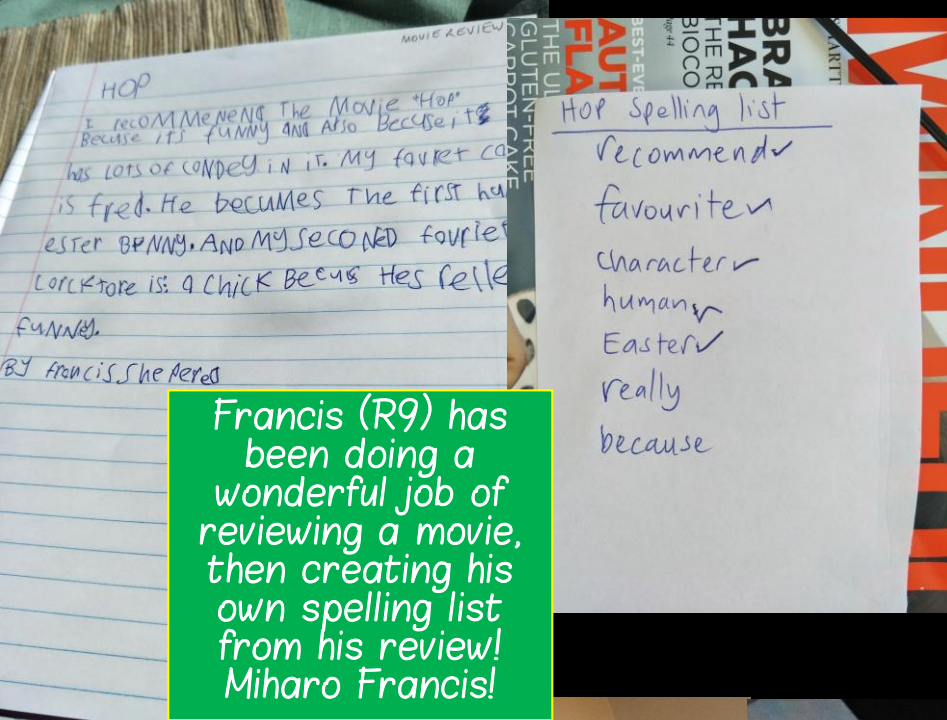 MOVIE REVIEW
HOP
I recommenend The Movie "Hop"
Becuse it's funny and Also Becuse it's
has lots of condey in it. My favret
is fred. He becumes The first
ester Bennny. And My seconed favrie
corcktore is: a chick Becus Hes relle
funny.
By francis Sheperes
HOP Spelling list
recommend
favourite
character
human
Easter
really
because
Francis (R9) has
been doing a
wonderful job of
reviewing a movie,
then creating his
own spelling list
from his review!
Miharo Francis!
THE UL
GLUTEN-FREE
CARROT CAKE
BEST-EVE
AUT
FLA
Page 44
BIOCO
THE RE
HAC
BRA